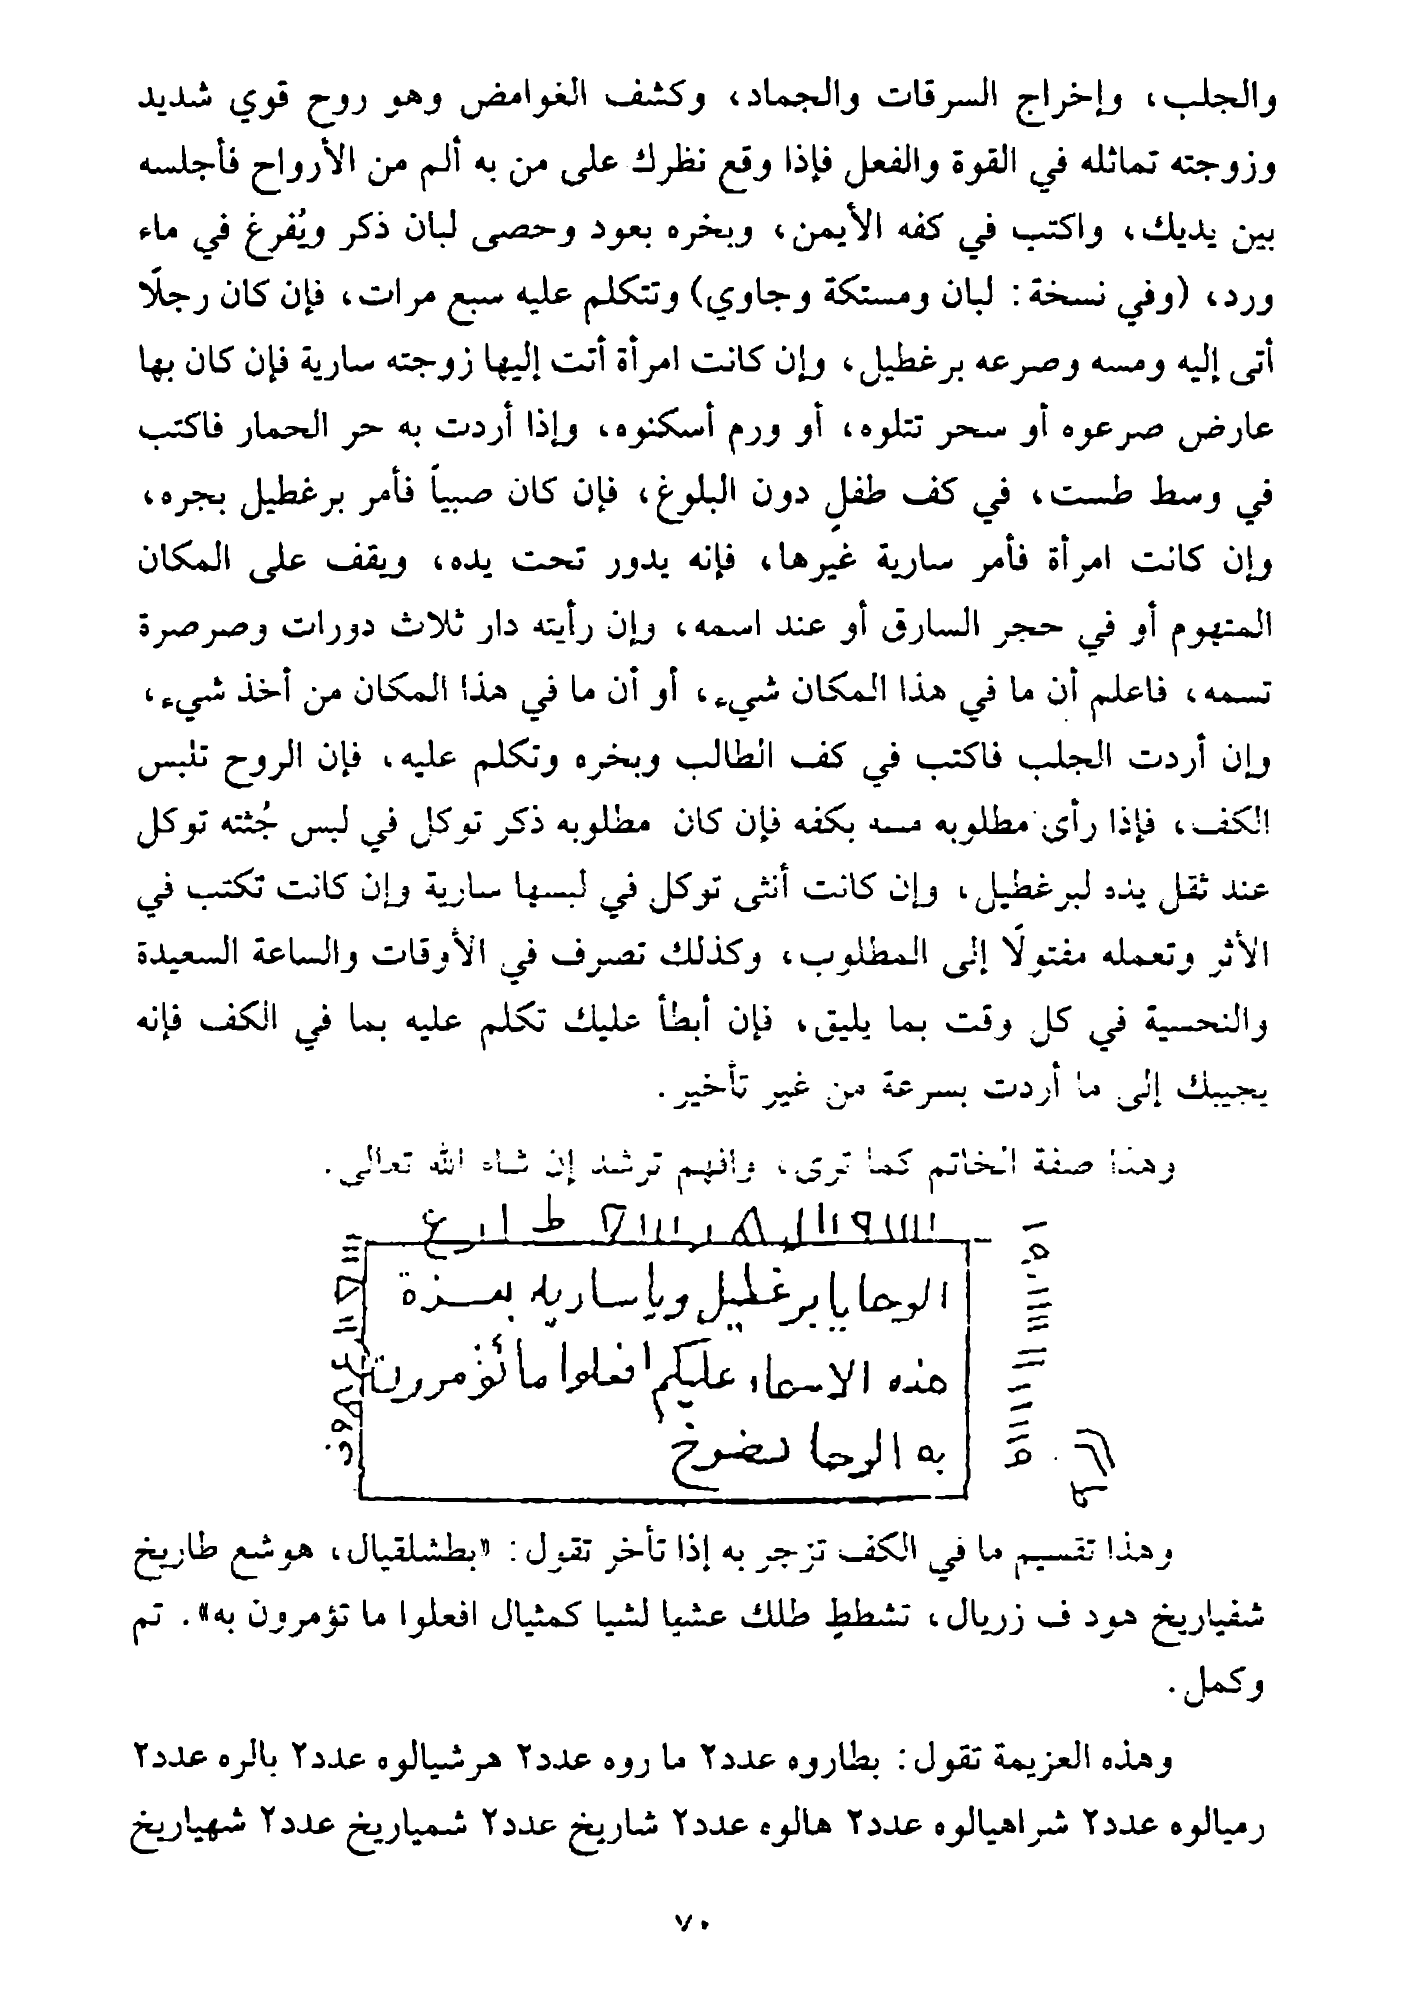 والجلب، وإخراج السرقات والجماد، وكشف الغوامض وهو روح قوي شديد
وزوجته تماثله في القوة والفعل فإذا وقع نظرك على من به ألم من الأرواح فأجلسه
بين يديك، واكتب في كفه الأيمن، وبخره بعود وحصى لبان ذكر ويُفرغ في ماء
ورد، (وفي نسخة: لبان ومستكة وجاوي) وتتكلم عليه سبع مرات، فإن كان رجلًا
أتى إليه ومسه وصرعه برغطيل، وإن كانت امرأة أتت إليها زوجته سارية فإن كان بها
عارض صرعوه أو سحر تتلوه، أو ورم أسكنوه، وإذا أردت به حر الحمار فاكتب
في وسط طست، في كف طفلٍ دون البلوغ، فإن كان صبياً فأمر برغطيل بجره،
وإن كانت امرأة فأمر سارية غيرها، فإنه يدور تحت يده، ويقف على المكان
المتهوم أو في حجر السارق أو عند اسمه، وإن رأيته دار ثلاث دورات وصرصرة
تسمه، فاعلم أن ما في هذا المكان شيء، أو أن ما في هذا المكان من أخذ شيء،
وإن أردت الجلب فاكتب في كف الطالب وبخره وتكلم عليه، فإن الروح تلبس
الكف، فإذا رأى مطلوبه مسه بكفه فإن كان مطلوبه ذكر توكل في لبس جُثته توكل
عند ثقل يده لبرغطيل، وإن كانت أنثى توكل في لبسها سارية وإن كانت تكتب في
الأثر وتعمله مفتولًا إلى المطلوب، وكذلك تصرف في الأوقات والساعة السعيدة
والنحسية في كل وقت بما يليق، فإن أبطأ عليك تكلم عليه بما في الكف فإنه
يجيبك إلى ما أردت بسرعة من غير تأخير.
وهذا صفة الخاتم كما ترى، وافهم ترشد إن شاء الله تعالى.
الوحا يا برغطيل ويا سارية بعزة
هذه الاسماء عليكم افعلوا ما تؤمرون
به الوحا
وهذا تقسيم ما في الكف تزجر به إذا تأخر تقول: «بطشلقيال، هوشع طاريخ
شفياريخ هود ف زريال، تشططٍ طلك عشيا لشيا كمثيال افعلوا ما تؤمرون به». تم
وكمل.
وهذه العزيمة تقول: بطاروه عدد٢ ما روه عدد٢ هرشيالوه عدد٢ بالره عدد٢
رميالوه عدد٢ شراهيالوه عدد٢ هالوه عدد٢ شاريخ عدد٢ شمياريخ عدد٢ شهياريخ
٧٠